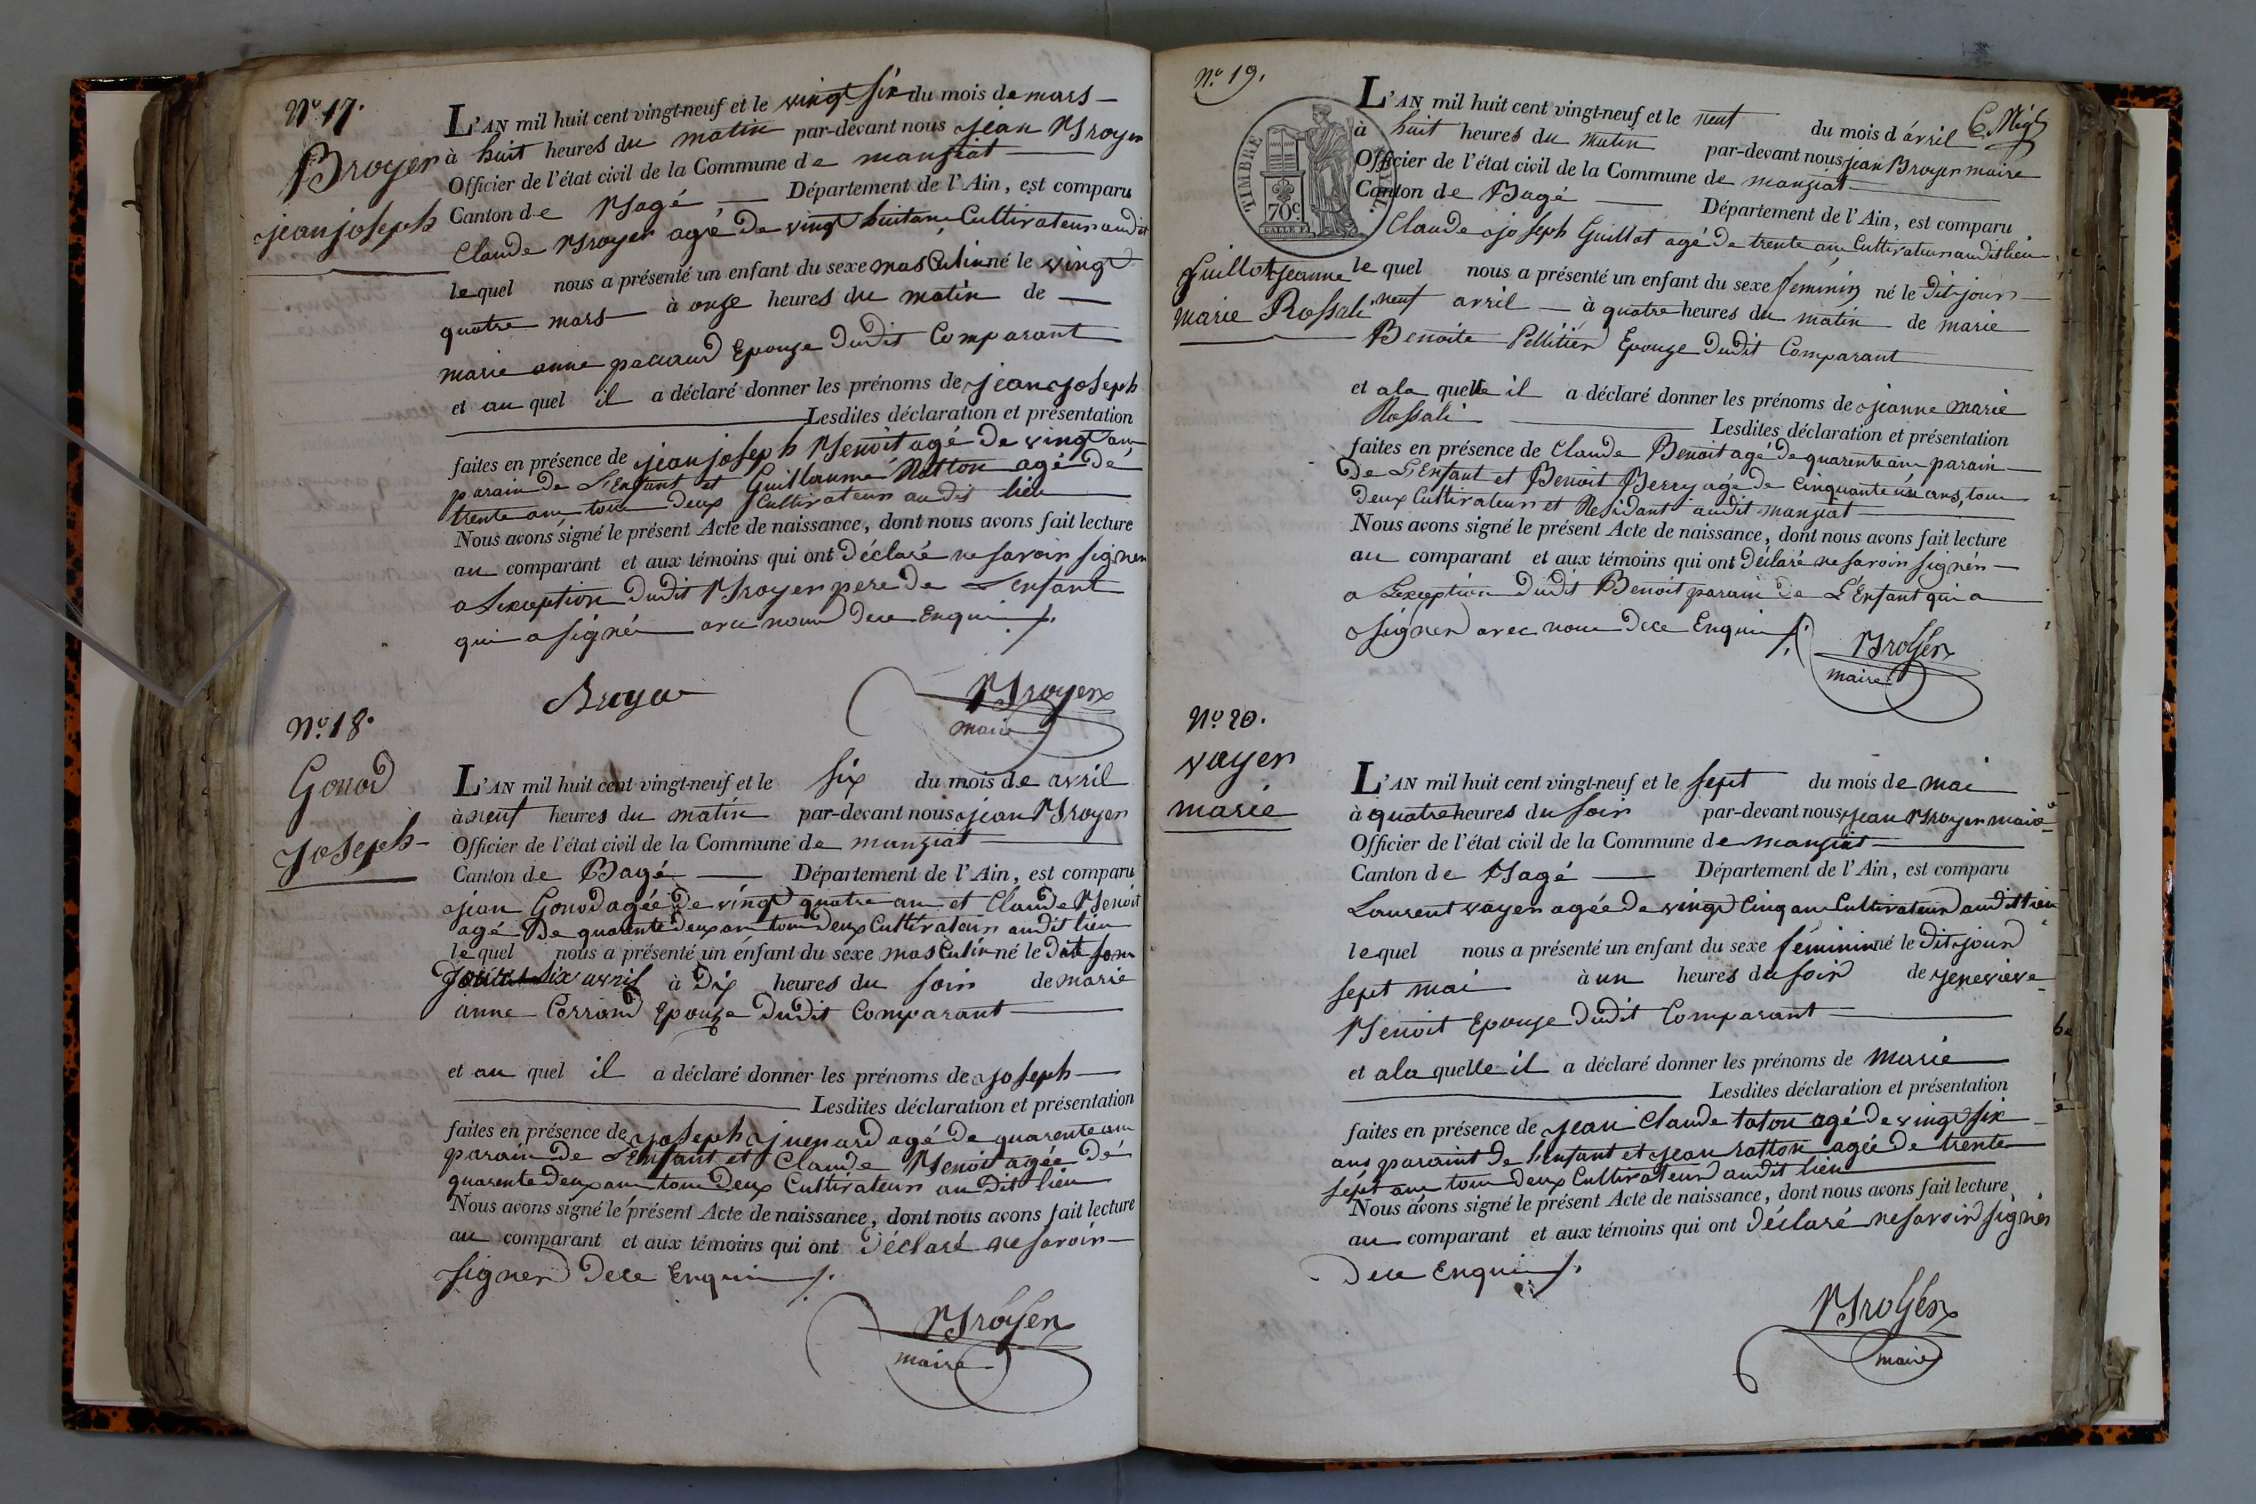 N.º 17.
Broyer
jean joseph
L'AN mil huit cent vingt-neuf et le vingt six du mois de mars
à huit heures du matin par-devant nous jean Broyer
Officier de l'état civil de la Commune de manziat
Canton de Bagé Département de l'Ain, est comparu
Claude Broyer agé de vingt huit ans Cultivateur audit
lequel nous a présenté un enfant du sexe masculin né le vingt
quatre mars à onze heures du matin de
marie anne pacaud Epouze dudit Comparant
et au quel il a déclaré donner les prénoms de jean joseph
Lesdites déclaration et présentation
faites en présence de jean joseph Benoit agé de vingt ans
parain de L'Enfant et Guillaume Ratton agé de
trente ans tous deux Cultivateurs audit lieu
Nous avons signé le présent Acte de naissance, dont nous avons fait lecture
au comparant et aux témoins qui ont Déclaré ne savoir signer
a Lexception dudit Broyer pere de L'enfant
qui a signé avec nous Dece Enquis
Broyer
Broyer
maire
N.º 18.
Gonod
Joseph
L'AN mil huit cent vingt-neuf et le six du mois de avril
à neuf heures du matin par-devant nous jean Broyer
Officier de l'état civil de la Commune de manziat
Canton de Bagé Département de l'Ain, est comparu
jean Gonod agée de vingt quatre ans et Claude Benoit
agé de quarente deux ans tous deux Cultivateurs audit lieu
lequel nous a présenté un enfant du sexe masculin né le
six avril à Dix heures du soir de marie
anne Corrand Epouze Dudit Comparant
et au quel il a déclaré donner les prénoms de joseph
Lesdites déclaration et présentation
faites en présence de joseph juenard agé de quarente ans
parain de L'Enfant et Claude Benoit agée de
quarente deux ans tous deux Cultivateurs audit lieu
Nous avons signé le présent Acte de naissance, dont nous avons fait lecture
au comparant et aux témoins qui ont déclaré ne savoir
signer Dece Enquis
Broyer
maire
N.º 19.
TIMBRE
70c
Guillot jeanne
marie Rossali
L'AN mil huit cent vingt-neuf et le neuf du mois d'avril
à huit heures du matin par-devant nous jean Broyer maire
Officier de l'état civil de la Commune de manziat
Canton de Bagé Département de l'Ain, est comparu
Claude joseph Guillot agé de trente ans Cultivateur audit lieu
lequel nous a présenté un enfant du sexe féminin né le Dit jour
neuf avril à quatre heures du matin de marie
Benoite Pellitier Epouze dudit Comparant
et a la quelle il a déclaré donner les prénoms de jeanne marie
Rossali Lesdites déclaration et présentation
faites en présence de Claude Benoit agé de quarente ans parain
de L'Enfant et Benoit Berry agé de Cinquante un ans, tous
deux Cultivateurs et Residant audit manziat
Nous avons signé le présent Acte de naissance, dont nous avons fait lecture
au comparant et aux témoins qui ont Déclaré ne savoir signer
a Lexception dudit Benoit parain de L'Enfant qui a
signer avec nous Dece Enquis
Broyer
maire
N.º 20.
vayer
marie
L'AN mil huit cent vingt-neuf et le sept du mois de mai
à quatre heures du soir par-devant nous jean Broyer maire
Officier de l'état civil de la Commune de manziat
Canton de Bagé Département de l'Ain, est comparu
Laurent vayer agée de vingt Cinq ans Cultivateur audit lieu
lequel nous a présenté un enfant du sexe féminin né le dit jour
sept mai à un heures du soir de genevieve
Benoit Epouze dudit Comparant
et a la quelle il a déclaré donner les prénoms de marie
Lesdites déclaration et présentation
faites en présence de jean Claude taton agé de vingt six
ans paraint de L'enfant et jean ratton agée de trente
sept ans tous deux Cultivateurs audit lieu
Nous avons signé le présent Acte de naissance, dont nous avons fait lecture
au comparant et aux témoins qui ont déclaré ne savoir signer
Dece Enquis
Broyer
maire